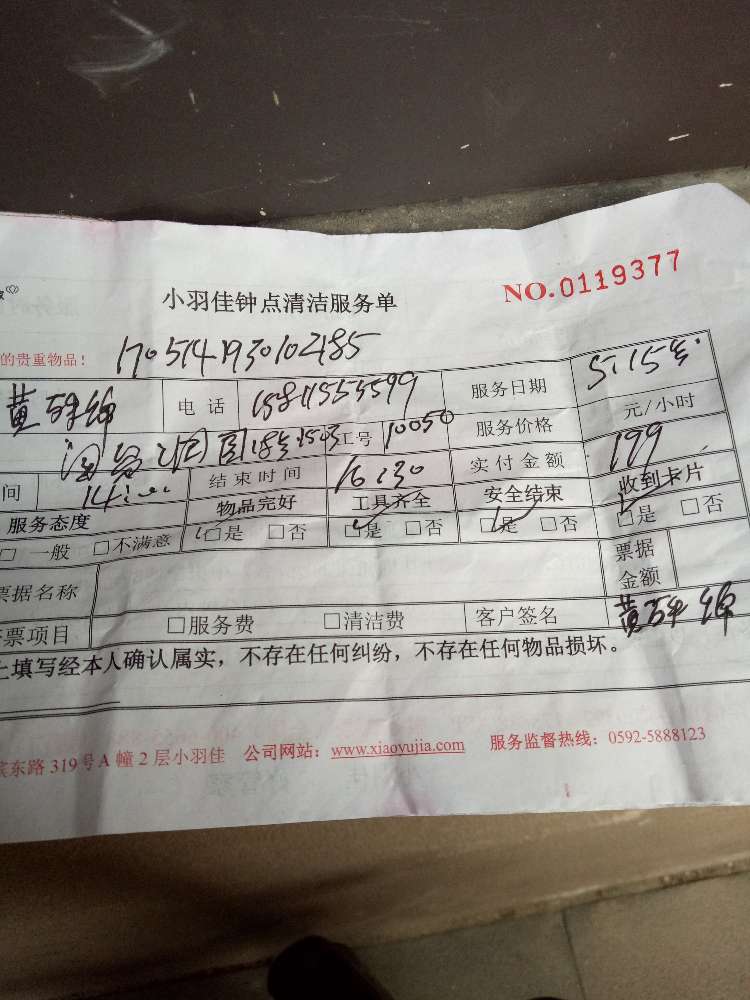 小羽佳钟点清洁服务单 NO.0119377
的贵重物品! 1705141930102185
黄 电话 服务日期 5.15
工号 10050 服务价格 元/小时
间 14: 结束时间 16:30 实付金额 199
服务态度 物品完好 工具齐全 安全结束 收到卡片
□ 一般 □不满意 □是 □否 □是 □否 □是 □否 □是 □否
票据名称 票据金额
票项目 □服务费 □清洁费 客户签名 黄
上填写经本人确认属实，不存在任何纠纷，不存在任何物品损坏。
滨东路 319 号 A 幢 2 层小羽佳 公司网站：www.xiaoyujia.com 服务监督热线：0592-5888123